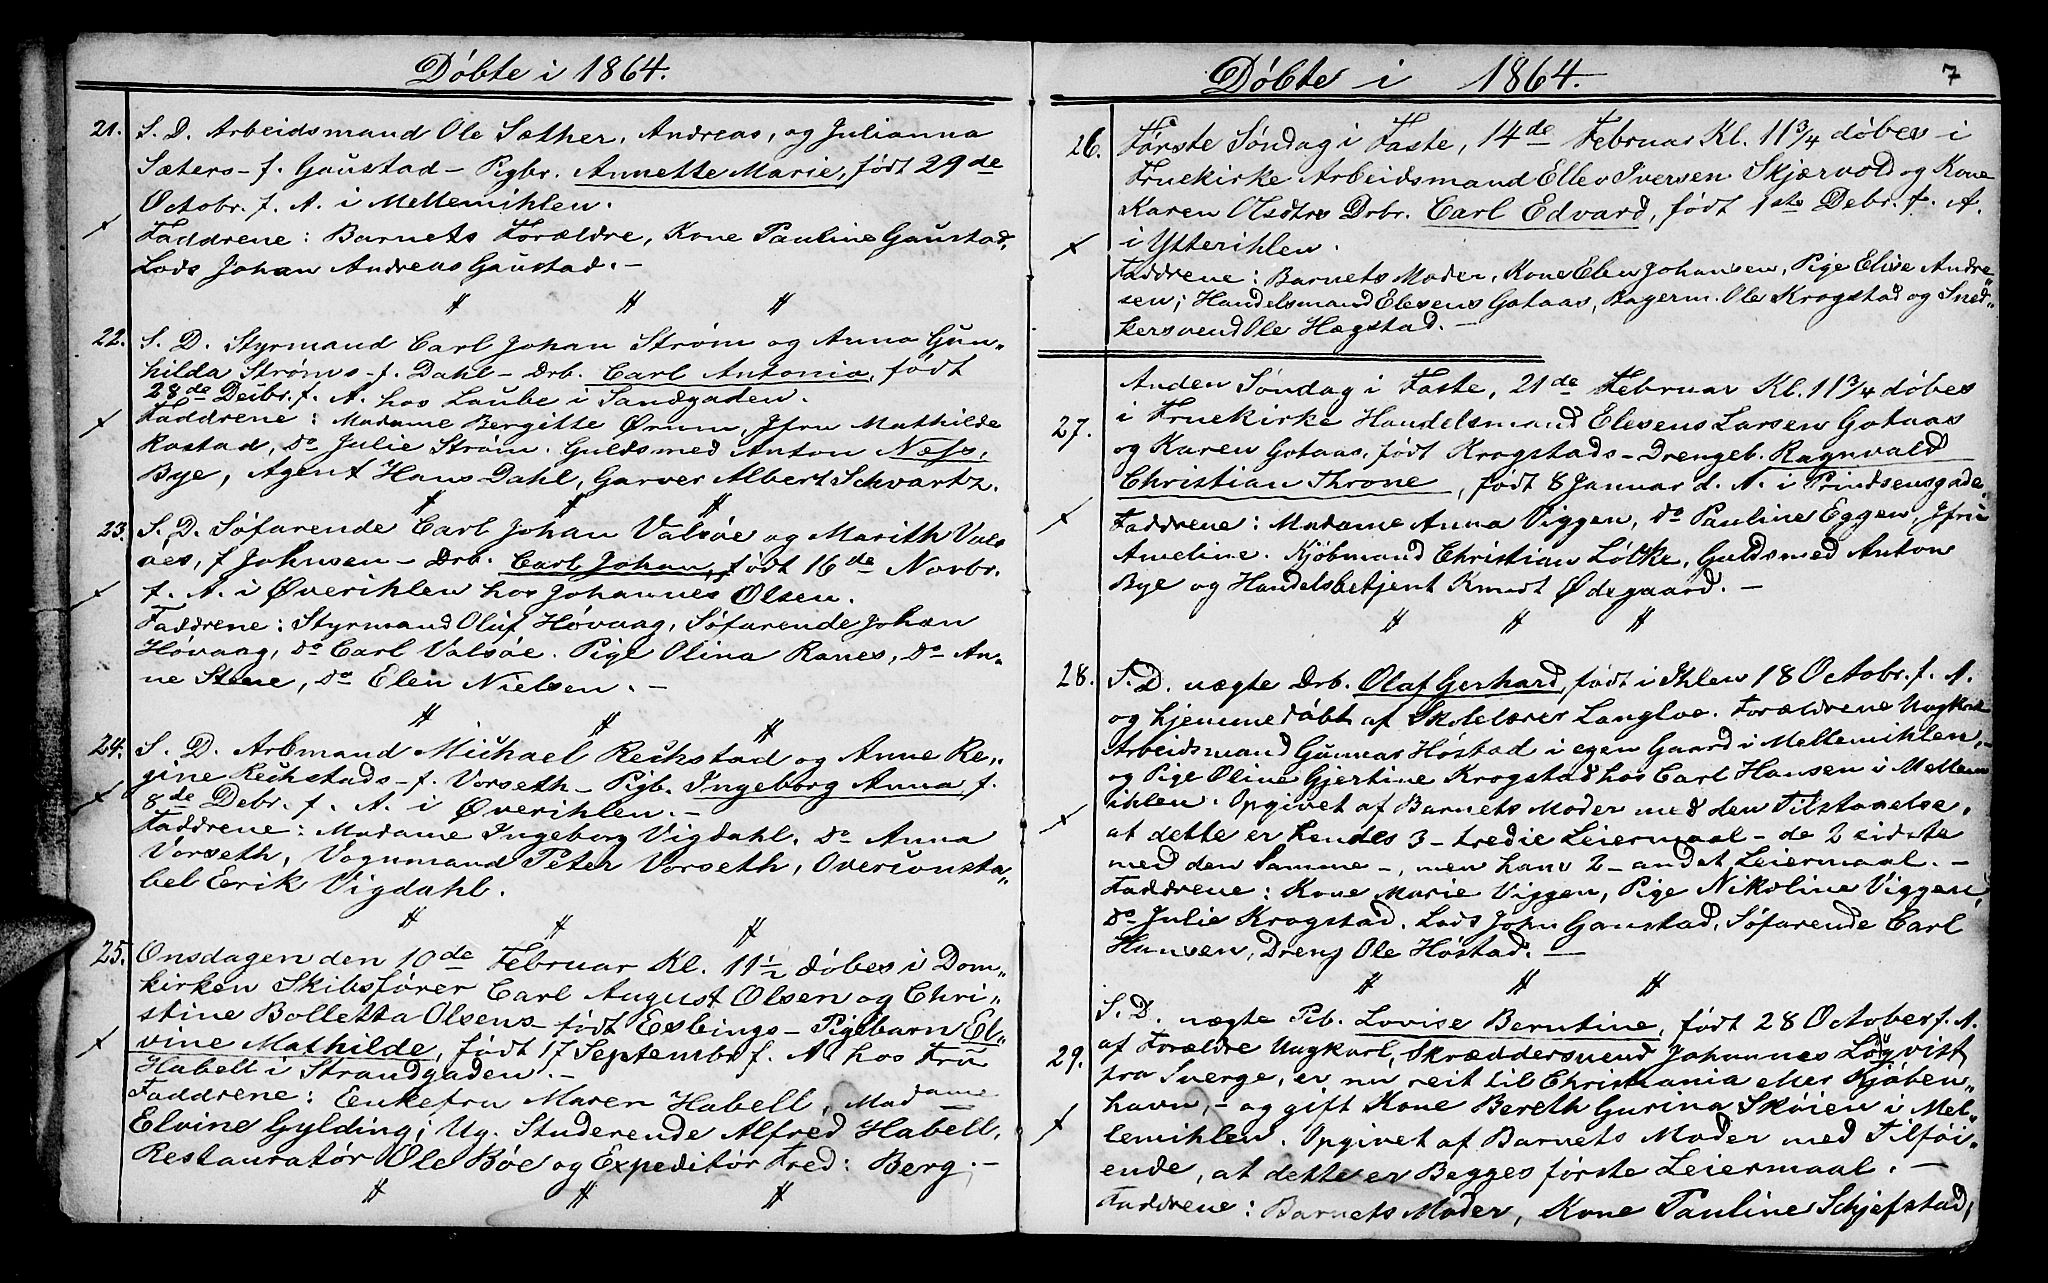 Døbte i 1864.
21. S. D. Arbeidsmand Ole Sæther, Andreas, og Julianna
Sæters - f. Gaustad - Pigbr. Annette Marie, født 29de
Octobr. f. A. i Mellemihlen.
Faddrene: Barnets Forældre, Kone Pauline Gaustad,
Lods Johan Andreas Gaustad. -
22. S. D. Styrmand Carl Johan Strøm og Anna Gun„
hilda Strøms - f. Dahl - Drb. Carl Antonio, født
28de Decbr. f. A. hos Laube i Sandgaden.
Faddrene: Madame Bergitte Ørum, Jfru Mathilde
Rostad, do Julie Strøm. Guldsmed Anton Næss,
Bye, Agent Hans Dahl, Garver Albert Schvartz.
23. S. D. Søfarende Carl Johan Valsøe og Marith Vals
øes, f Johnsen - Drb. Carl Johan, født 16de Novbr.
f. A. i Øverihlen hos Johannes Olsen.
Faddrene: Styrmand Oluf Høvaag, Søfarende Johan
Høvaag, do Carl Valsøe. Pige Olina Ranes, do An„
ne Stene, do Elen Nielsen. -
24. S. D. Arbmand Michael Reckstad og Anne Re„
gine Reckstads - f. Vorseth - Pigb. Ingeborg Anna, f.
8de Debr. f. A. i Øverihlen. -
Faddrene: Madame Ingeborg Vigdahl, do Anna
Vorseth, Vognmand Peter Vorseth, Overconsta„
bel Eerik Vigdahl.
25. Onsdagen den 10de Februar Kl. 11 1/2 døbes i Dom„
kirken Skibsfører Carl August Olsen og Chri„
stine Bolletta Olsens - født Esbings - Pigebarn El„
vine Mathilde, født 17 Septembr f. A. hos Fru
Habell i Strandgaden. -
Faddrene: Enkefru Maren Habell, Madame
Elvine Gylding; Ug. Studerende Alfred Habell,
Restauratør Ole Bøe og Expeditør Fred: Berg. -
Døbte i 1864. 7
26. Første Søndag i Faste, 14de Februar Kl. 11 3/4 døbes i
Fruekirke Arbeidsmand Ellev Iversen Skjærvold og Kone
Karen Olsdtrs Drbr. Carl Edvard, født 1ste Debr. f. A.
i Ytterihlen.
Faddrene: Barnets Moder, Kone Elen Johansen, Pige Elise Andre„
sen; Handelsmand Elesens Gotaas, Bagerm. Ole Krogstad og Sned„
kersvend Ole Hægstad. -
Anden Søndag i Faste, 21de Februar Kl. 11 3/4 døbes
27. i Fruekirke Handelsmand Elesens Larsen Gotaas
og Karen Gotaas, født Krogstads - Drengeb. Ragnvald
Christian Throne, født 8 Januar d. A. i Prindsensgade.
Faddrene: Madame Anna Viggen, do Pauline Eggen, Jfru
Ameline. Kjøbmand Christian Løtke, Guldsmed Anton
Bye og Handelsbetjent Knudt Ødegaard. -
28. S. D. uægte Drb. Olaf Gerhard, født i Ihlen 18 Octobr. f. A.
og hjemmedøbt af Skolelærer Langloe. Forældrene Ungkarl
Arbeidsmand Gunnar Høstad i egen Gaard i Mellemihlen, -
og Pige Olina Gjertine Krogstad hos Carl Hansen i Mellem
ihlen. Opgivet af Barnets Moder med den Tilstaaelse,
at dette er hendes 3 - tredie Leiermaal - de 2 sidste
med den Samme -, men hans 2 - andet Leiermaal. -
Faddrene: Kone Marie Viggen, Pige Nikoline Viggen,
do Julie Krogstad. Lods John Gaustad, Søfarende Carl
Hansen, Dreng Ole Høstad. -
S. D. uægte Pib. Lovise Berntine, født 28 October f. A.
29. af Forældre Ungkarl, Skræddersvend Johannes Løgvist
fra Sverge, er nu reist til Christiania eller Kjøben„
havn, - og gift Kone Bereth Gurina Skøien i Mel„
lemihlen. Opgivet af Barnets Moder med Tilføi„
ende, at dette er Begges første Leiermaal. -
Faddrene: Barnets Moder, Kone Pauline Schjefstad,